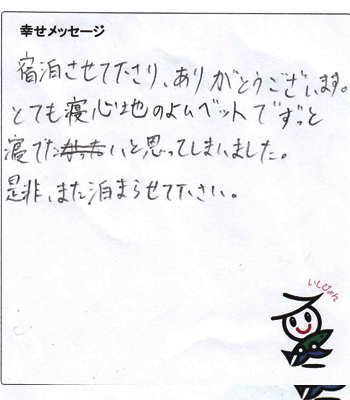 幸せメッセージ
宿泊させて下さり、ありがとうございます。
とても寝心地のよいベットでずっと
寝てたいと思ってしまいました。
是非、また泊まらせて下さい。